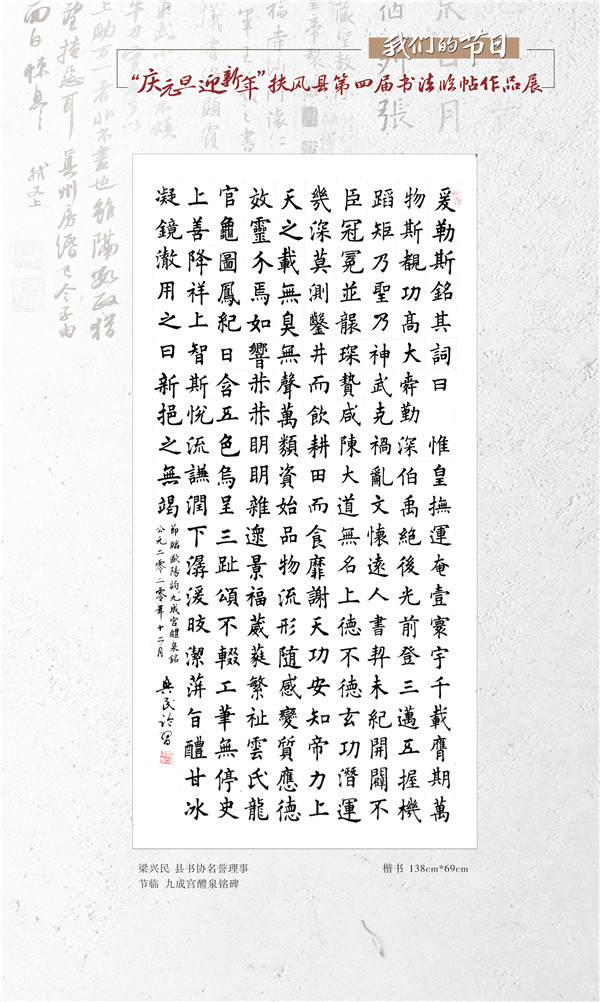 我们的节日
“庆元旦迎新年”扶风县第四届书法临帖作品展
爰勒斯銘其詞曰 惟皇撫運奄壹寰宇千載膺期萬
物斯覩功高大舜勤深伯禹絕後光前登三邁五握機
蹈矩乃聖乃神武克禍亂文懷遠人書契未紀開闢不
臣冠冕並襲琛贄咸陳大道無名上德不德玄功潛運
幾深莫測鑿井而飲耕田而食靡謝天功安知帝力上
天之載無臭無聲萬類資始品物流形隨感變質應德
效靈介焉如響赫赫明明雜遝景福葳蕤繁祉雲氏龍
官龜圖鳳紀日含五色烏呈三趾頌不輟工筆無停史
上善降祥上智斯悅流謙潤下潺湲皎潔蓱旨醴甘冰
凝鏡澈用之日新挹之無竭
節臨歐陽詢九成宮醴泉銘
公元二零二零年十二月
梁兴民 县书协名誉理事
节临 九成宫醴泉铭碑
楷书 138cm*69cm